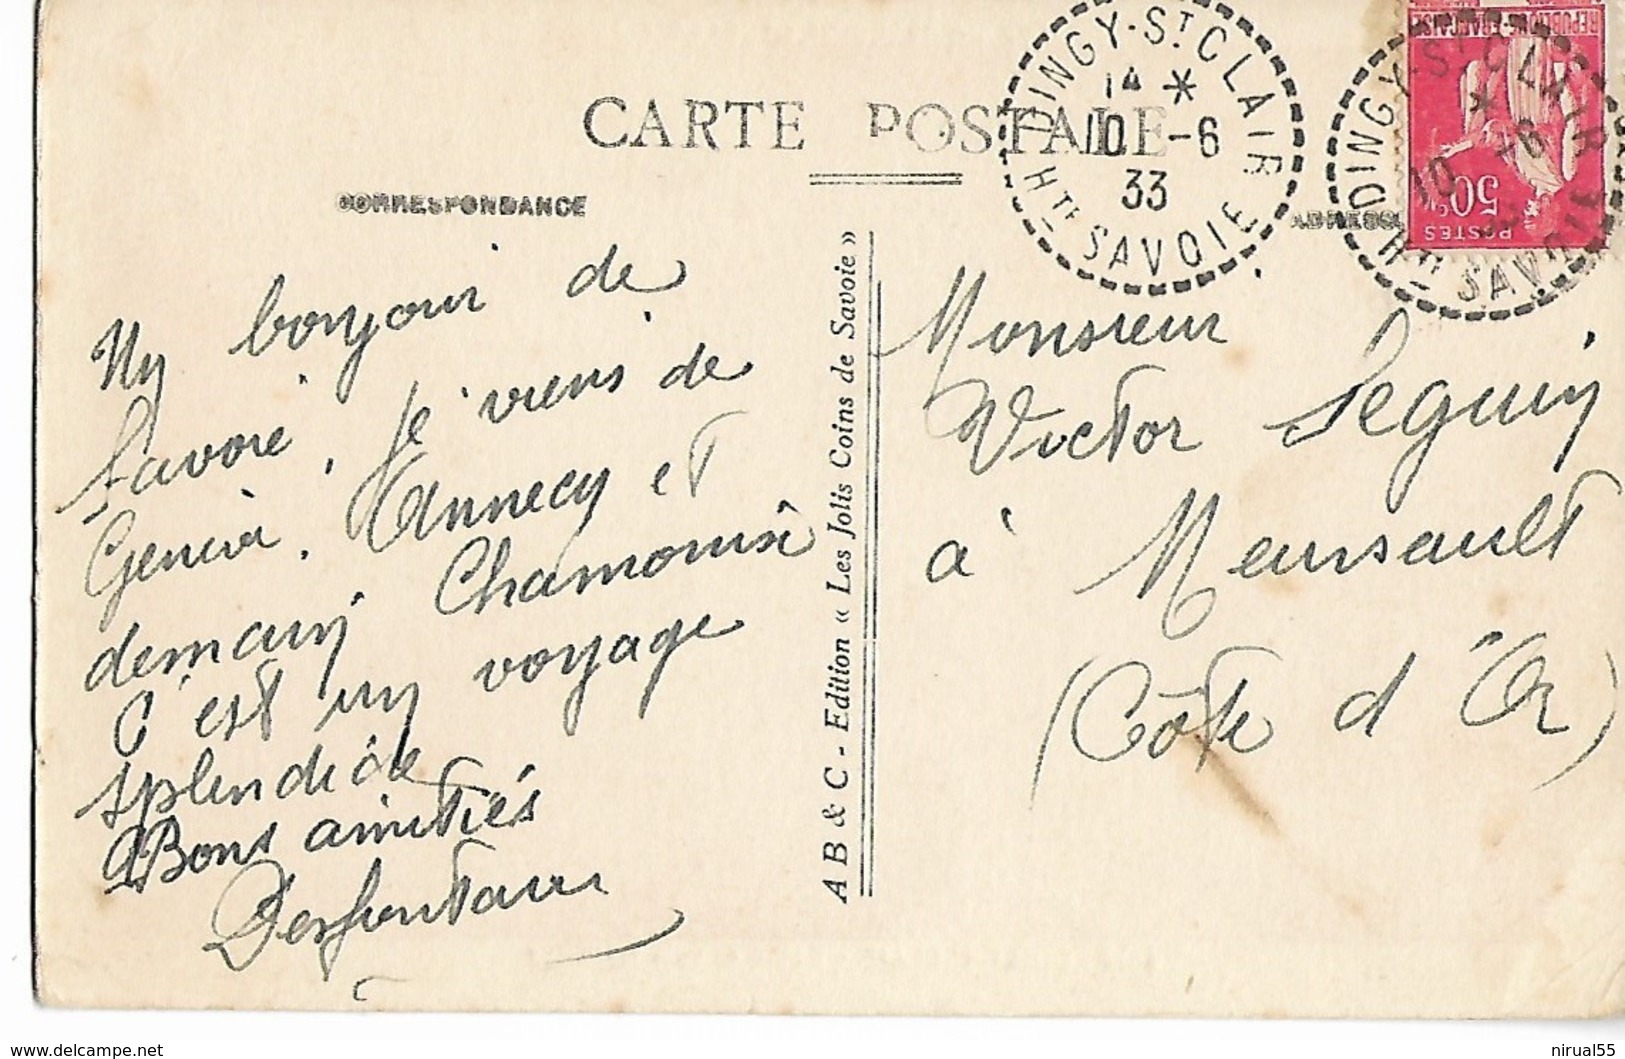 CARTE POSTALE
CORRESPONDANCE
DINGY-ST CLAIR
14 *
10 -6
33
HTE SAVOIE
REPUBLIQUE FRANCAISE
50
POSTES
DINGY-ST CLAIR
*
10 -6
HTE SAVOIE
Un bonjour de
Savoie. Je viens de
Genève. Annecy et
demain Chamonix
C'est un voyage
splendide
Bons amitiés
Desfontaines
A B & C - Edition « Les Jolis Coins de Savoie »
Monsieur
Victor Seguin
à Meursault
(Côte d'Or)
delcampe.net
nirual55